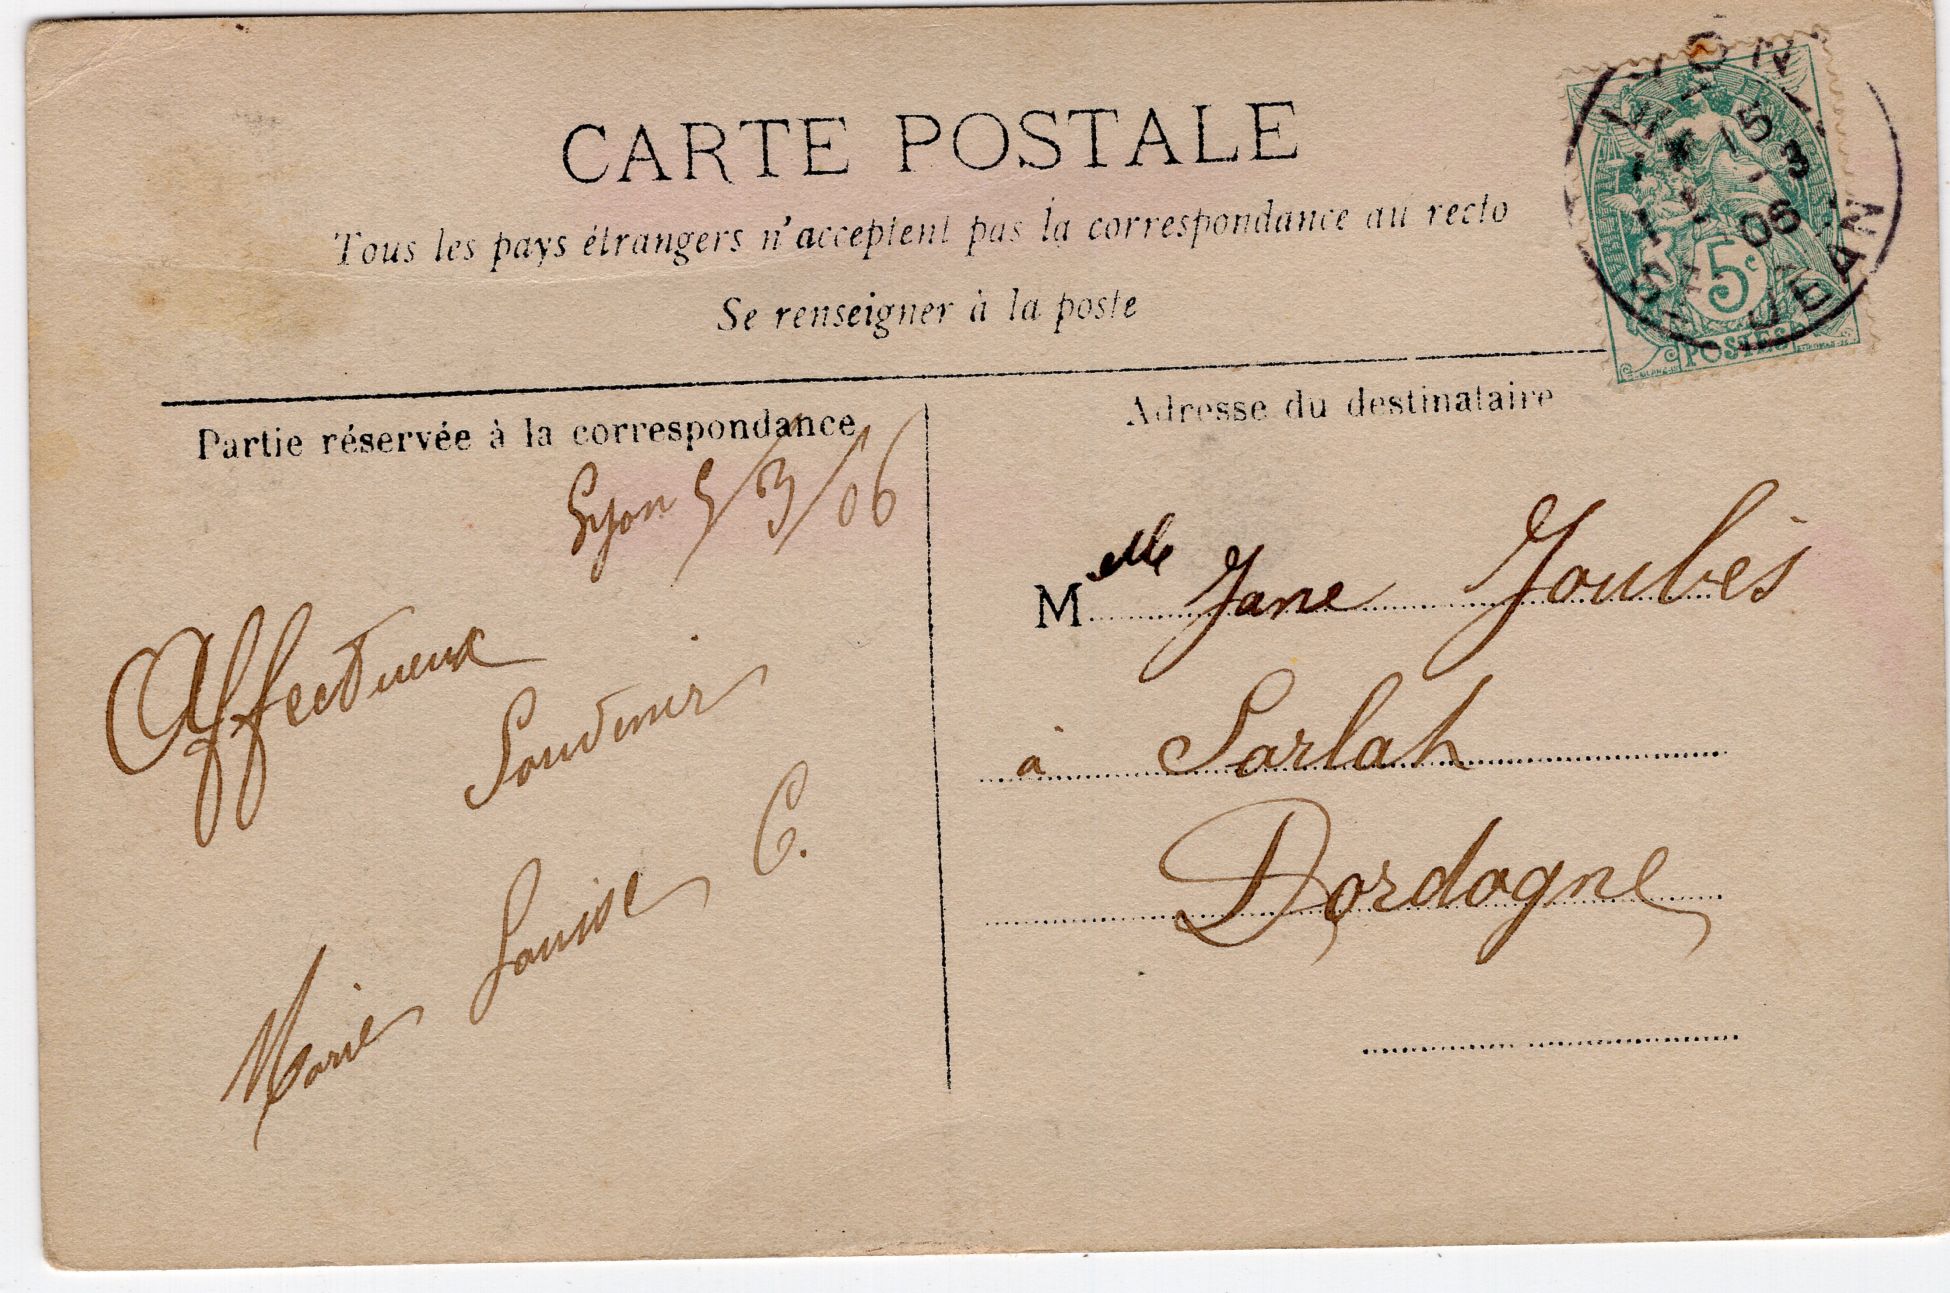 CARTE POSTALE
Tous les pays étrangers n'acceptent pas la correspondance au recto
Se renseigner à la poste
LYON
15
3
06
ST JEAN
5c
POSTES
Partie réservée à la correspondance
Adresse du destinataire
Lyon 5/3/06
Affectueux
Souvenir
Marie Louise C.
Melle Jane Joubès
à Sarlat
Dordogne